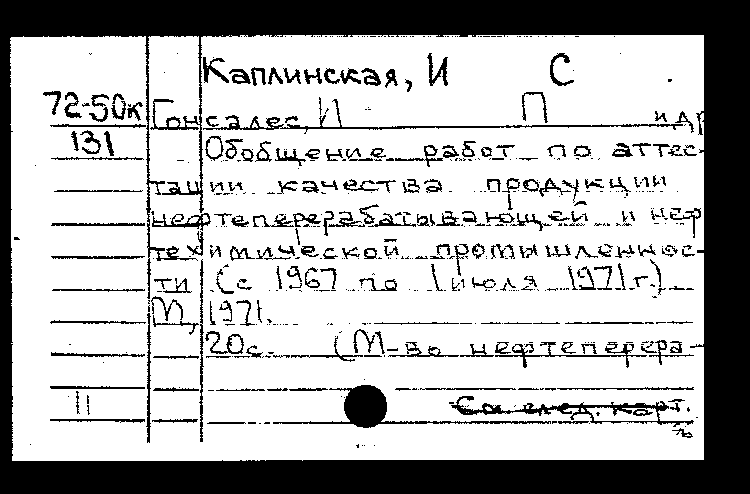 Каплинская, И С
72-50к Гонсалес, И П и др
131 Обобщение работ по аттес-
тации качества продукции
нефтеперерабатывающей и неф
техимической промышленнос-
ти (с 1967 по 1 июля 1971 г.)
М, 1971.
20с. (М-во нефтеперера-
11 См. след. карт.